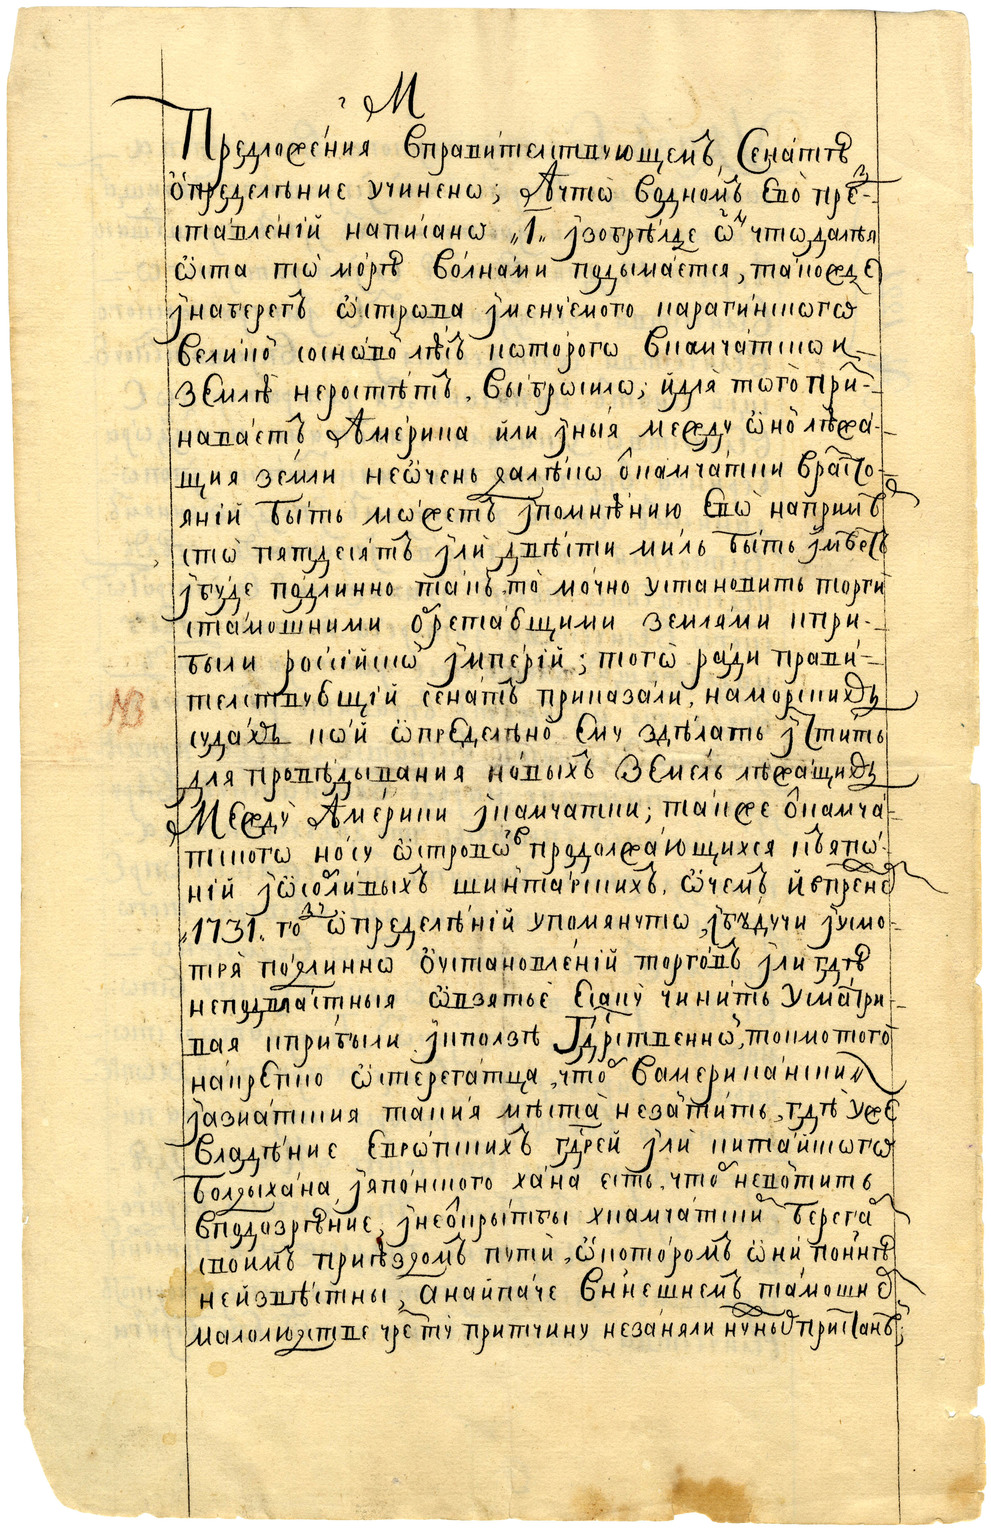 М
Предложения вправителствующемъ, Сенатѣ
ѡпределѣние учинено; Ачто водномъ Ево пре³-
ставлений написано „1„ изобрѣлде ѡⁿ что далѣя
ѿста то мо́рѣ волнами подымается, такожде
инаберегъ ѡстрова именуемого карагинского
великой сосновой лѣсъ которого вкамчатско и
Землѣ неростѣтъ, выбросило; идля того при-
знаваетъ Америка или иныя между ѡной лѣжа-
щия земли неѡчень далѣко ѿкамчатки врасто-
яний быть можетъ ипомнѣнию Ево напримѣ
сто пятдесятъ или двѣсти миль быть имѣетъ
ибуде подлинно такъ, то мочно установить торги
стамошними ѡбретающими землями кпри-
были росcийской империй; того ради прави-
телствующий сенатъ приказали, наморскихъ
судахъ кой ѡпределѣно Ему здѣлать иитить
для проведывания новыхъ Земель лѣжащихъ
Между Америки икамчатки; также ѿкамча-
тского носу ѡстрововъ продолжающихся къяпо-
ний иѡсобливыхъ шинтарскихъ, ѡчемъ ивпрежне
„1731„ го³ ѡпределѣний упомянуто, ибудучи иусмо-
тря подлинно ѡбустановлений торговъ или гдѣ
неподвластныя ѡвзятье Ясаку чинить усматри-
вая кприбыли икползѣ Гдрственной, токмо того
накрепко ѡстерегатца, чтоб вамериканския
иазиатския такия мѣста незатить, гдѣ уже
владѣние Европскихъ гдрей или китайского
болдыхана, ияпонского хана есть, чтоб непотить
вподозрѣние, инеѿкрытьбы хкамчатской берега
своимъ приѣздомъ пути, ѡкоторомъ ѡни поннѣ
неизвѣстны, анайпаче внынешнемъ тамошнем
малолюдстве чрезту притчину незаняли нужныхъ пристанъ;
NB